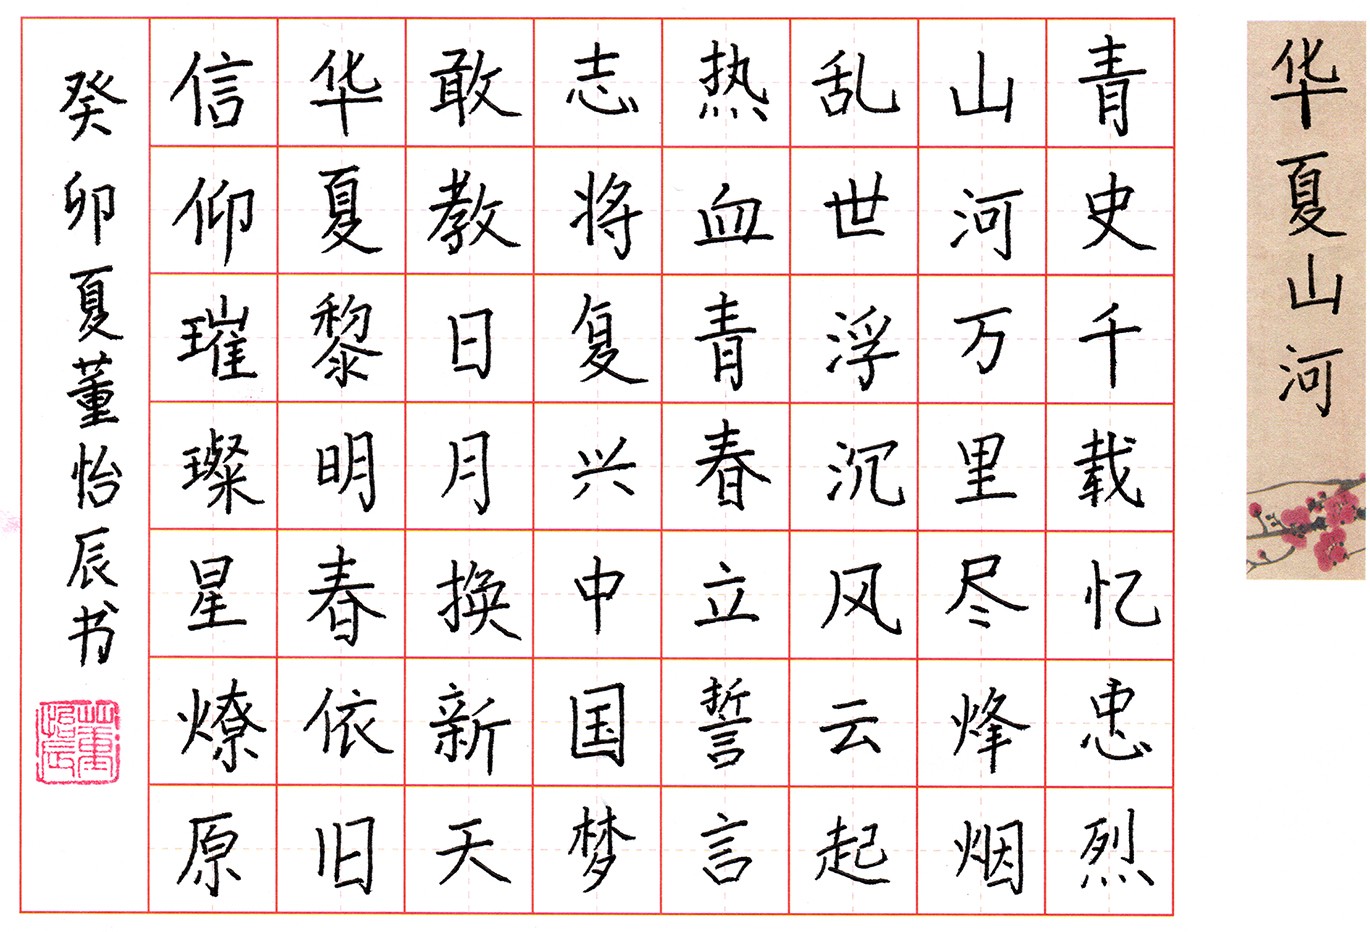 华夏山河
青史千载忆忠烈
山河万里尽烽烟
乱世浮沉风云起
热血青春立誓言
志将复兴中国梦
敢教日月换新天
华夏黎明春依旧
信仰璀璨星燎原
癸卯夏董怡辰书
董怡辰